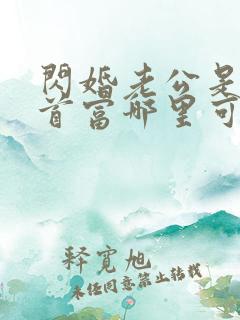 閃婚老公是
首富哪里可
释寬旭
未经同意禁止转载